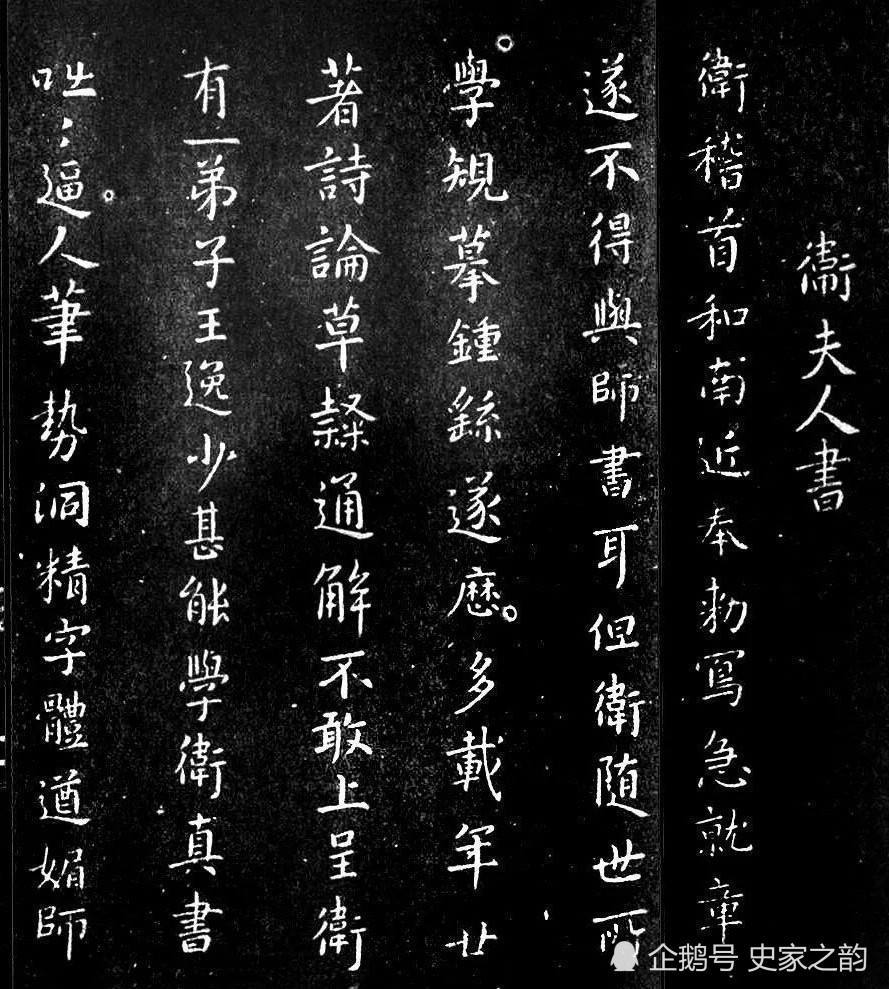 衛夫人書
衛稽首和南近奉勅寫急就章
遂不得與師書耳但衛隨世所
學規摹鍾繇遂歷多載年廿
著詩論草隸通解不敢上呈衛
有一弟子王逸少甚能學衛真書
咄〻逼人筆勢洞精字體遒媚師
企鹅号 史家之韵